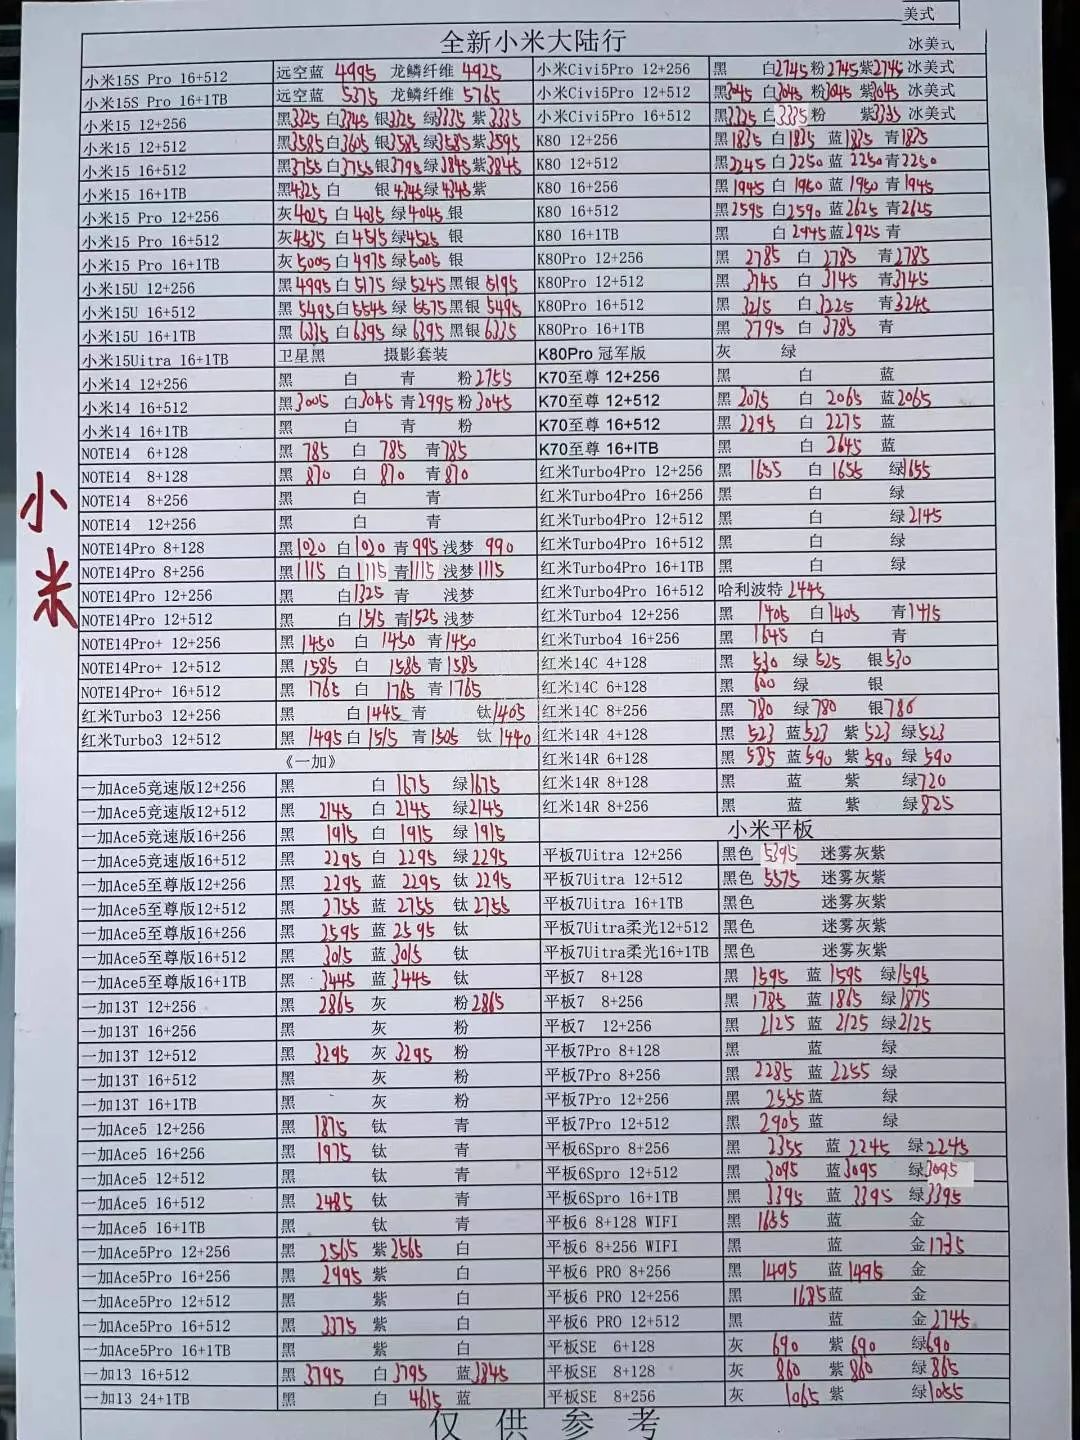 美式
全新小米大陆行
冰美式
小米15S Pro 16+512 远空蓝 4995 龙鳞纤维 4925
小米15S Pro 16+1TB 远空蓝 5375 龙鳞纤维 5765
小米15 12+256 黑3325 白3345 银3325 绿3335 紫3335
小米15 12+512 黑3585 白3605 银3585 绿3585 紫3595
小米15 16+512 黑3755 白3755 银3795 绿3845 紫3845
小米15 16+1TB 黑4325 白 银4345 绿4345 紫
小米15 Pro 12+256 灰4025 白4035 绿4045 银
小米15 Pro 16+512 灰4535 白4515 绿4525 银
小米15 Pro 16+1TB 灰5005 白4975 绿5005 银
小米15U 12+256 黑4995 白5175 绿5245 黑银5195
小米15U 16+512 黑5495 白5545 绿5575 黑银5495
小米15U 16+1TB 黑6335 白6395 绿6395 黑银6335
小米15Uitra 16+1TB 卫星黑 摄影套装
小米14 12+256 黑 白 青 粉2755
小米14 16+512 黑3005 白3045 青2995 粉3045
小米14 16+1TB 黑 白 青 粉
NOTE14 6+128 黑 785 白 785 青785
NOTE14 8+128 黑 870 白 870 青870
NOTE14 8+256 黑 白 青
NOTE14 12+256 黑 白 青
NOTE14Pro 8+128 黑1020 白1020 青995 浅梦 990
NOTE14Pro 8+256 黑1115 白1115 青1115 浅梦1115
NOTE14Pro 12+256 黑 白1325 青 浅梦
NOTE14Pro 12+512 黑 白1515 青1525 浅梦
NOTE14Pro+ 12+256 黑1450 白 1450 青1450
NOTE14Pro+ 12+512 黑1585 白 1585 青1585
NOTE14Pro+ 16+512 黑1765 白 1765 青1765
红米Turbo3 12+256 黑 白1445 青 钛1405
红米Turbo3 12+512 黑 1495 白1515 青1505 钛 1440
《一加》
一加Ace5竞速版12+256 黑 白 1675 绿1675
一加Ace5竞速版12+512 黑 2145 白 2145 绿2145
一加Ace5竞速版16+256 黑 1915 白 1915 绿 1915
一加Ace5竞速版16+512 黑 2295 白 2295 绿2295
一加Ace5至尊版12+256 黑 2295 蓝 2295 钛 2295
一加Ace5至尊版12+512 黑 2755 蓝 2755 钛2755
一加Ace5至尊版16+256 黑 2595 蓝 2595 钛
一加Ace5至尊版16+512 黑 3015 蓝3015 钛
一加Ace5至尊版16+1TB 黑 3445 蓝3445 钛
一加13T 12+256 黑 2865 灰 粉2865
一加13T 16+256 黑 灰 粉
一加13T 12+512 黑 3295 灰 3295 粉
一加13T 16+512 黑 灰 粉
一加13T 16+1TB 黑 灰 粉
一加Ace5 12+256 黑 1875 钛 青
一加Ace5 16+256 黑 1975 钛 青
一加Ace5 12+512 黑 钛 青
一加Ace5 16+512 黑 2485 钛 青
一加Ace5 16+1TB 黑 钛 青
一加Ace5Pro 12+256 黑 2565 紫2565 白
一加Ace5Pro 16+256 黑 2995 紫 白
一加Ace5Pro 12+512 黑 紫 白
一加Ace5Pro 16+512 黑 3375 紫 白
一加Ace5Pro 16+1TB 黑 紫 白
一加13 16+512 黑 3795 白3795 蓝3845
一加13 24+1TB 黑 白 4615 蓝
小米Civi5Pro 12+256 黑 白2745 粉2745 紫2745 冰美式
小米Civi5Pro 12+512 黑3045 白3045 粉3045 紫3045 冰美式
小米Civi5Pro 16+512 黑3325 白3335 粉 紫3335 冰美式
K80 12+256 黑1835 白1835 蓝1835 青1835
K80 12+512 黑2245 白2250 蓝2250 青2250
K80 16+256 黑1945 白1950 蓝1950 青1945
K80 16+512 黑2595 白2590 蓝2625 青2625
K80 16+1TB 黑 白2945 蓝2925 青
K80Pro 12+256 黑 2785 白 2785 青2785
K80Pro 12+512 黑 3145 白 3145 青3145
K80Pro 16+512 黑 3215 白 3225 青3245
K80Pro 16+1TB 黑 3795 白 3785 青
K80Pro 冠军版 灰 绿
K70至尊 12+256 黑 白 蓝
K70至尊 12+512 黑2075 白 2065 蓝2065
K70至尊 16+512 黑2295 白 2275 蓝
K70至尊 16+ITB 黑 白 2645 蓝
红米Turbo4Pro 12+256 黑 1655 白 1655 绿1655
红米Turbo4Pro 16+256 黑 白 绿
红米Turbo4Pro 12+512 黑 白 绿2145
红米Turbo4Pro 16+512 黑 白 绿
红米Turbo4Pro 16+1TB 黑 白 绿
红米Turbo4Pro 16+512 哈利波特 2445
红米Turbo4 12+256 黑 1405 白1405 青1415
红米Turbo4 16+256 黑 1645 白 青
红米14C 4+128 黑 530 绿 525 银530
红米14C 6+128 黑 600 绿 银
红米14C 8+256 黑 780 绿780 银780
红米14R 4+128 黑 523 蓝523 紫 523 绿523
红米14R 6+128 黑 585 蓝590 紫 590 绿 590
红米14R 8+128 黑 蓝 紫 绿720
红米14R 8+256 黑 蓝 紫 绿825
小米平板
平板7Uitra 12+256 黑色 5395 迷雾灰紫
平板7Uitra 12+512 黑色 5575 迷雾灰紫
平板7Uitra 16+1TB 黑色 迷雾灰紫
平板7Uitra柔光12+512 黑色 迷雾灰紫
平板7Uitra柔光16+1TB 黑色 迷雾灰紫
平板7 8+128 黑 1595 蓝 1595 绿1595
平板7 8+256 黑 1785 蓝 1865 绿1875
平板7 12+256 黑 2125 蓝 2125 绿2125
平板7Pro 8+128 黑 蓝 绿
平板7Pro 8+256 黑 2285 蓝 2255 绿
平板7Pro 12+256 黑 2555 蓝 绿
平板7Pro 12+512 黑 2905 蓝 绿
平板6Spro 8+256 黑 2355 蓝 2245 绿2245
平板6Spro 12+512 黑 3095 蓝3095 绿3095
平板6Spro 16+1TB 黑 3395 蓝 3395 绿3395
平板6 8+128 WIFI 黑 1655 蓝 金
平板6 8+256 WIFI 黑 蓝 金1735
平板6 PRO 8+256 黑 1495 蓝1495 金
平板6 PRO 12+256 黑 1685 蓝 金
平板6 PRO 12+512 黑 蓝 金2745
平板SE 6+128 灰 690 紫690 绿690
平板SE 8+128 灰 860 紫860 绿865
平板SE 8+256 灰 1065 紫 绿1055
小米
仅供参考